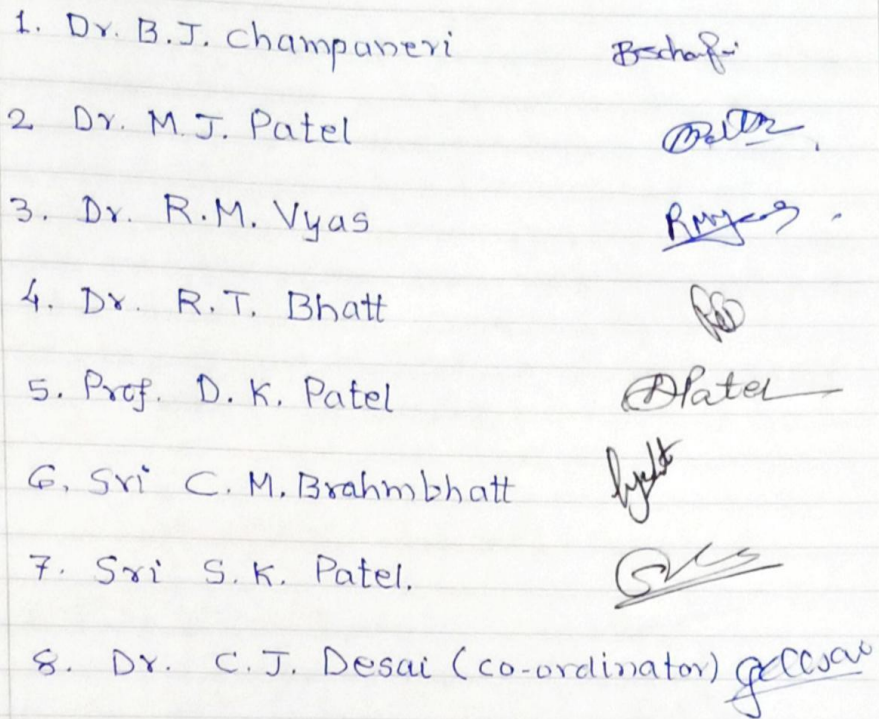 1. Dr. B.J. Champaneri
2 Dr. M.J. Patel
3. Dr. R.M. Vyas
4. Dr. R.T. Bhatt
5. Prof. D.K. Patel DPatel
6. Sri C.M. Brahmbhatt
7. Sri S.K. Patel.
8. Dr. C.J. Desai (co-ordinator)